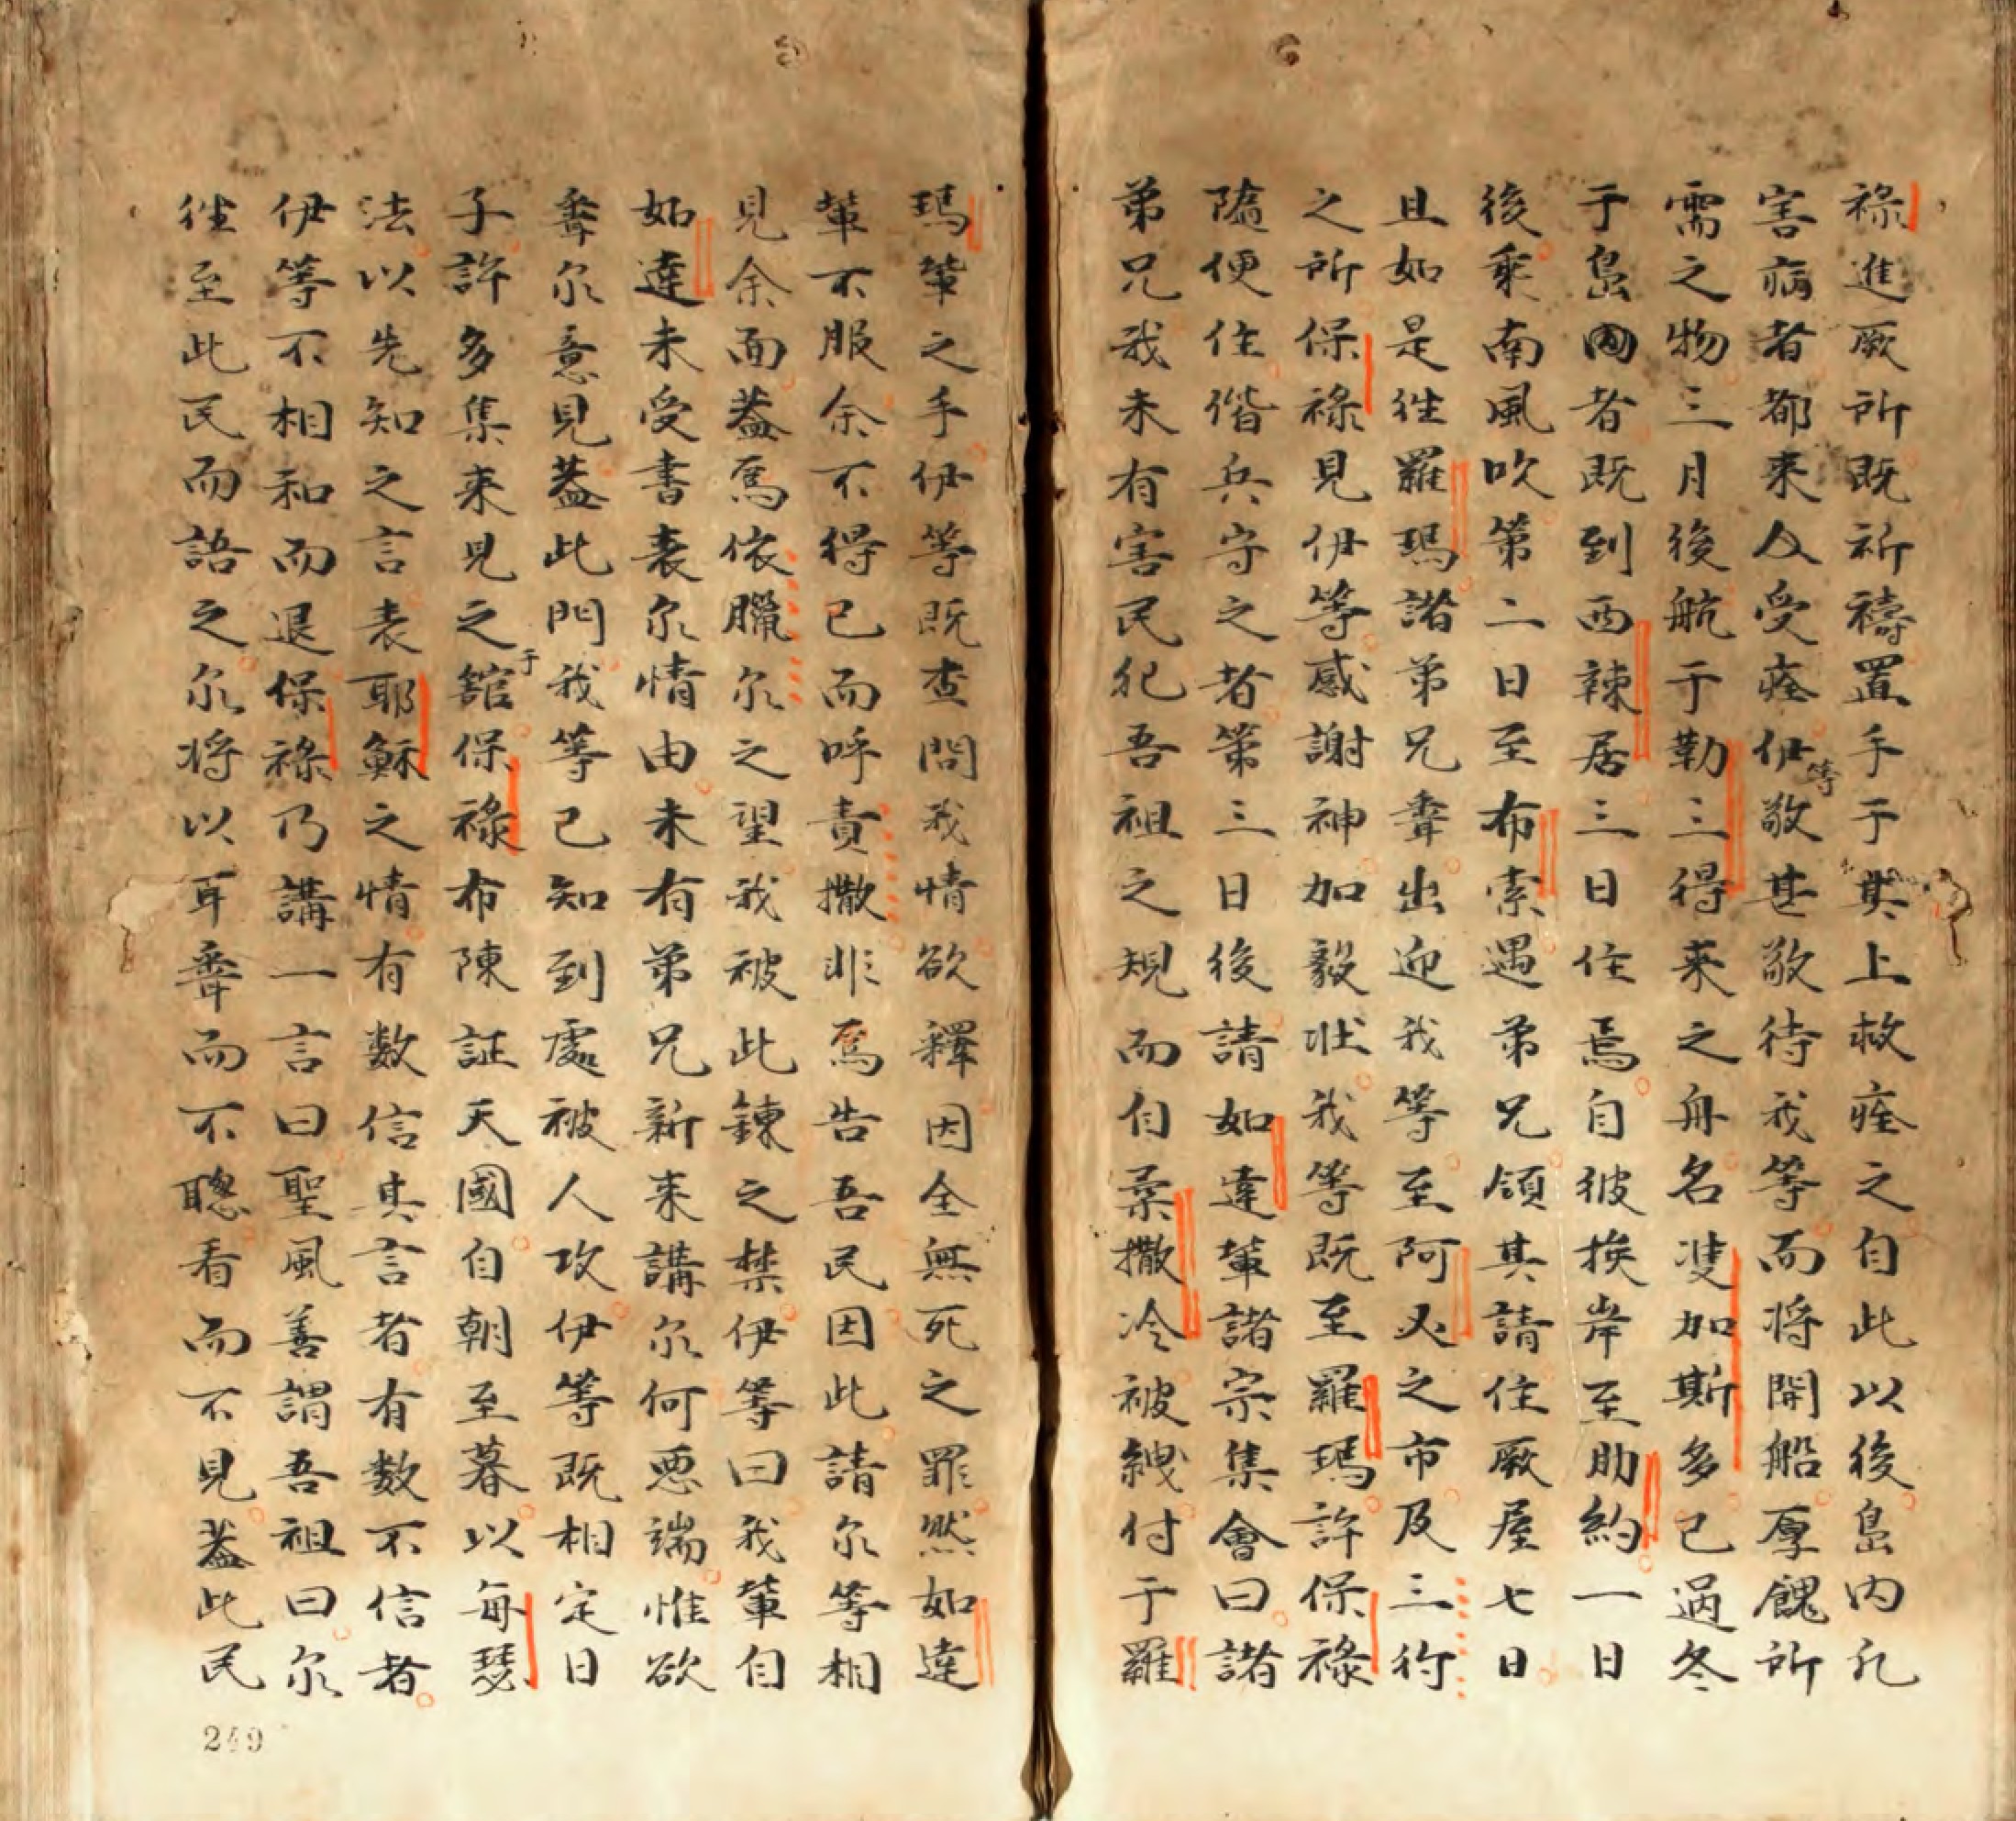 祿進厥所既祈禱置手于其上救痊之自此以後島内凡
害病者都来及受痊伊等敬甚敬待我等而将開船厚餽所
需之物三月後航于勒三得萊之舟名䨇加斯多已過冬
于島内者既到西辣居三日住焉自彼挨岸至肋約一日
後乘南風吹第二日至布索遇弟兄領其請住厥屋七日
且如是徃羅瑪諸弟兄聋出迎我等至阿及之市及三行
之所保祿見伊等感謝神加毅壯我等既至羅瑪許保祿
隨便住偕兵守之者第三日後請如達輩諸宗集會曰諸
弟兄我未有害民犯吾祖之規而自柔撒冷被絏付于羅
瑪輩之手伊等既查問我情欲釋因全無死之罪然如達
輩不服余不得已而呼責撒非焉告吾民因此請尔等相
見余而葢為依臘尔之望我被此鍊之禁伊等曰我輩自
如達未受書表尔情由未有弟兄新来講尔何悪端惟欲
聋尔意見葢此門我等已知到處被人攻伊等既相定日
子許多集来見之于舘保祿布陳証天國自朝至暮以每瑟
法以先知之言表耶穌之情有数信其言者有数不信者
伊等不相和而退保祿乃講一言曰聖風善謂吾祖曰尔
徃至此民而語之尔将以耳聋而不聰看而不見葢此民
249